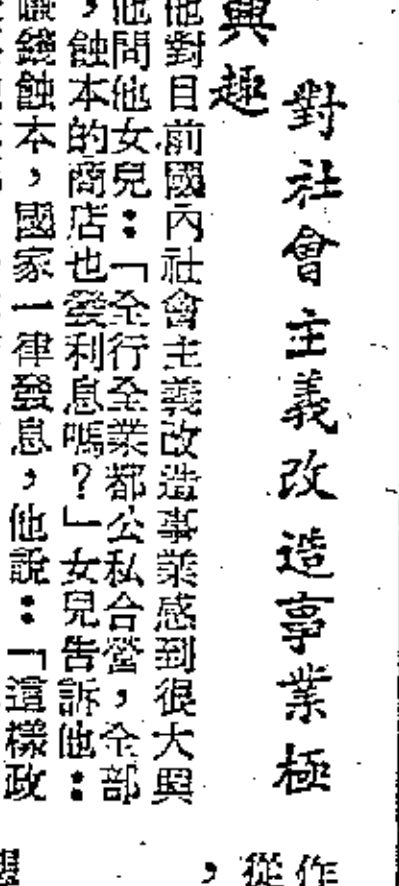 對社會主義改造事業極
興趣
他對目前國內社會主義改造事業感到很大興
他問他女兒：「全行全業都公私合營，全部
，蝕本的商店也發利息嗎？」女兒告訴他：
賺錢蝕本，國家一律發息，他說：「這樣政
作
從
，